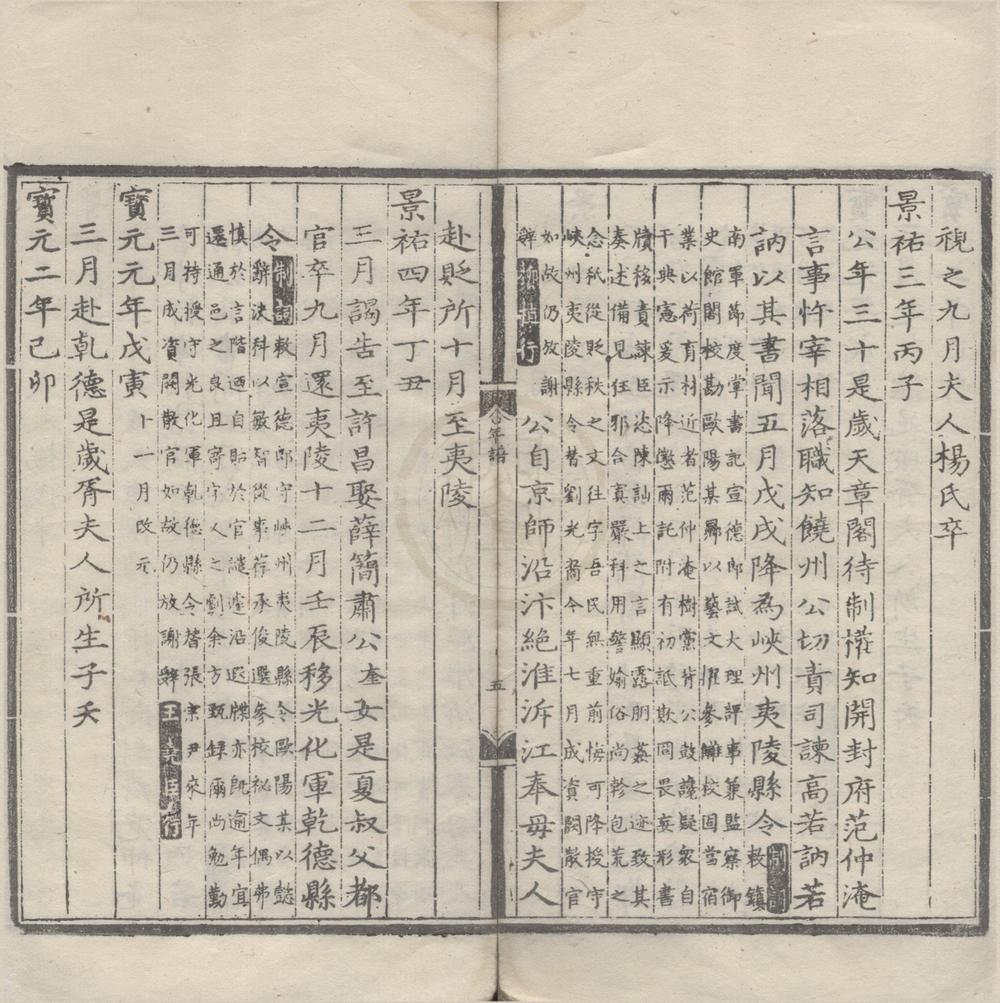 視之九月夫人楊氏卒
景祐三年丙子
公年三十是歲天章閣待制權知開封府范仲淹
言事忤宰相落職知饒州公切責司諫高若訥若
訥以其書聞五月戊戌降為峽州夷陵縣令制詞敕鎮
南軍節度掌書記宣德郎試大理評事兼監察御
史館閣校勘歐陽某歸以藝文擢參讎校固當宿
業以荷育材近者范仲淹樹黨背公鼓讒疑衆自
干典憲爰示降懲爾託附有初詆欺罔畏妄形書
牘移責諫臣恣陳訕上之言顯露朋姦之迹致其
奏述備見狂邪合寘嚴科用警媮俗尚軫包荒之
念秖從貶秩之文往字吾民無重前悔可降授守
峽州夷陵縣令替劉光裔今年七月成資闕散官
如故仍放謝
辭柳植行
公自京師沿汴絶淮泝江奉母夫人
合年譜
五
赴貶所十月至夷陵
景祐四年丁丑
三月謁告至許昌娶薛簡肅公奎女是夏叔父都
官卒九月還夷陵十二月壬辰移光化軍乾德縣
令制詞敕宣德郎守峽州夷陵縣令歐陽某以懿
辭決科以敏智從事荐承俊選參校祕文偶弗
慎於言階迺自貽於官譴遽沿遐牒亦旣逾年宜
遷通邑之良且寄字人之劇余方甄錄爾尚勉勤
可持授守光化軍軋德縣令替張宗尹來年
三月成資闕散官如故仍放謝辭王堯臣行
寶元元年戊寅
十一月改元
三月赴乹德是歲胥夫人所生子夭
寶元二年己卯